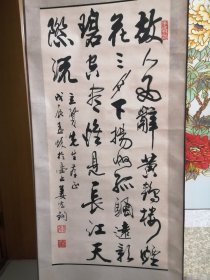 故人西辭黄鶴樓煙
花三月下揚州孤帆遠影
碧空盡惟見長江天
際流
先生雅正
戊辰